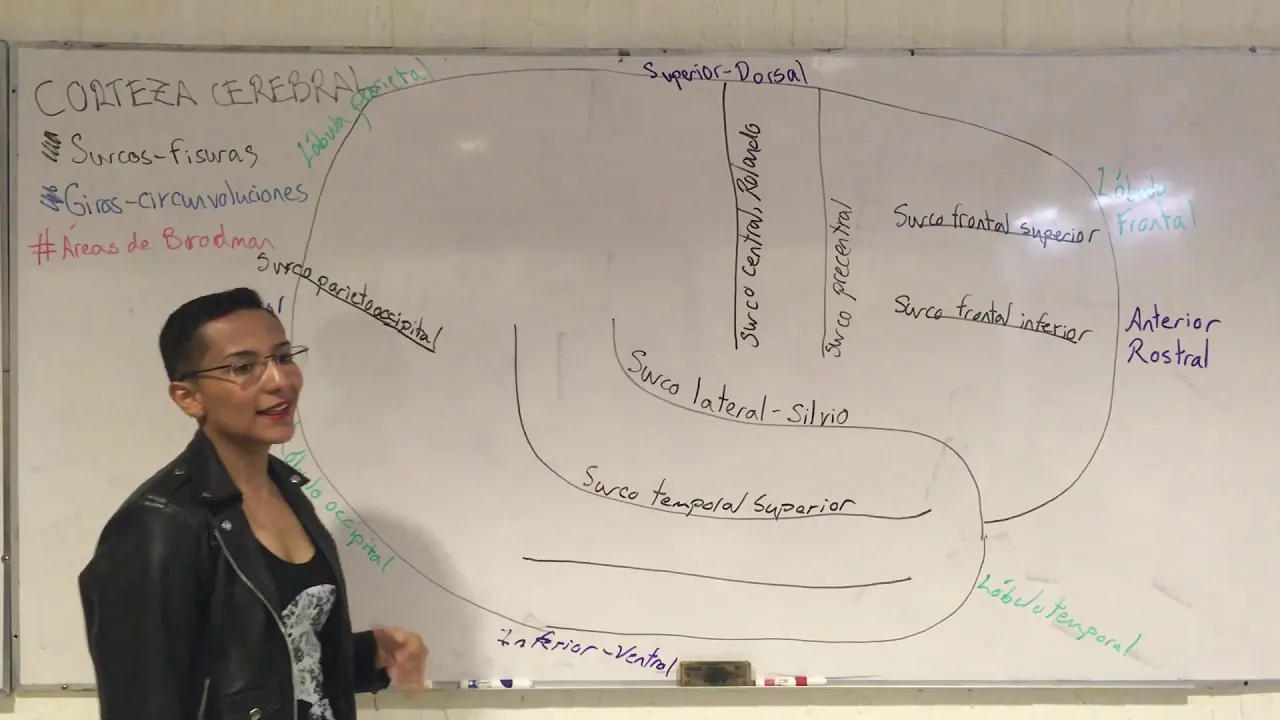 CORTEZA CEREBRAL
Surcos-fisuras
Giros-circunvoluciones
#Áreas de Brodman
Lóbulo parietal
Superior-Dorsal
Surco central, Rolando
Surco precentral
Surco frontal superior
Surco frontal inferior
Lóbulo
Frontal
Anterior
Rostral
Surco parietooccipital
Surco lateral-Silvio
Surco temporal Superior
occipital
Lóbulo temporal
Inferior-Ventral